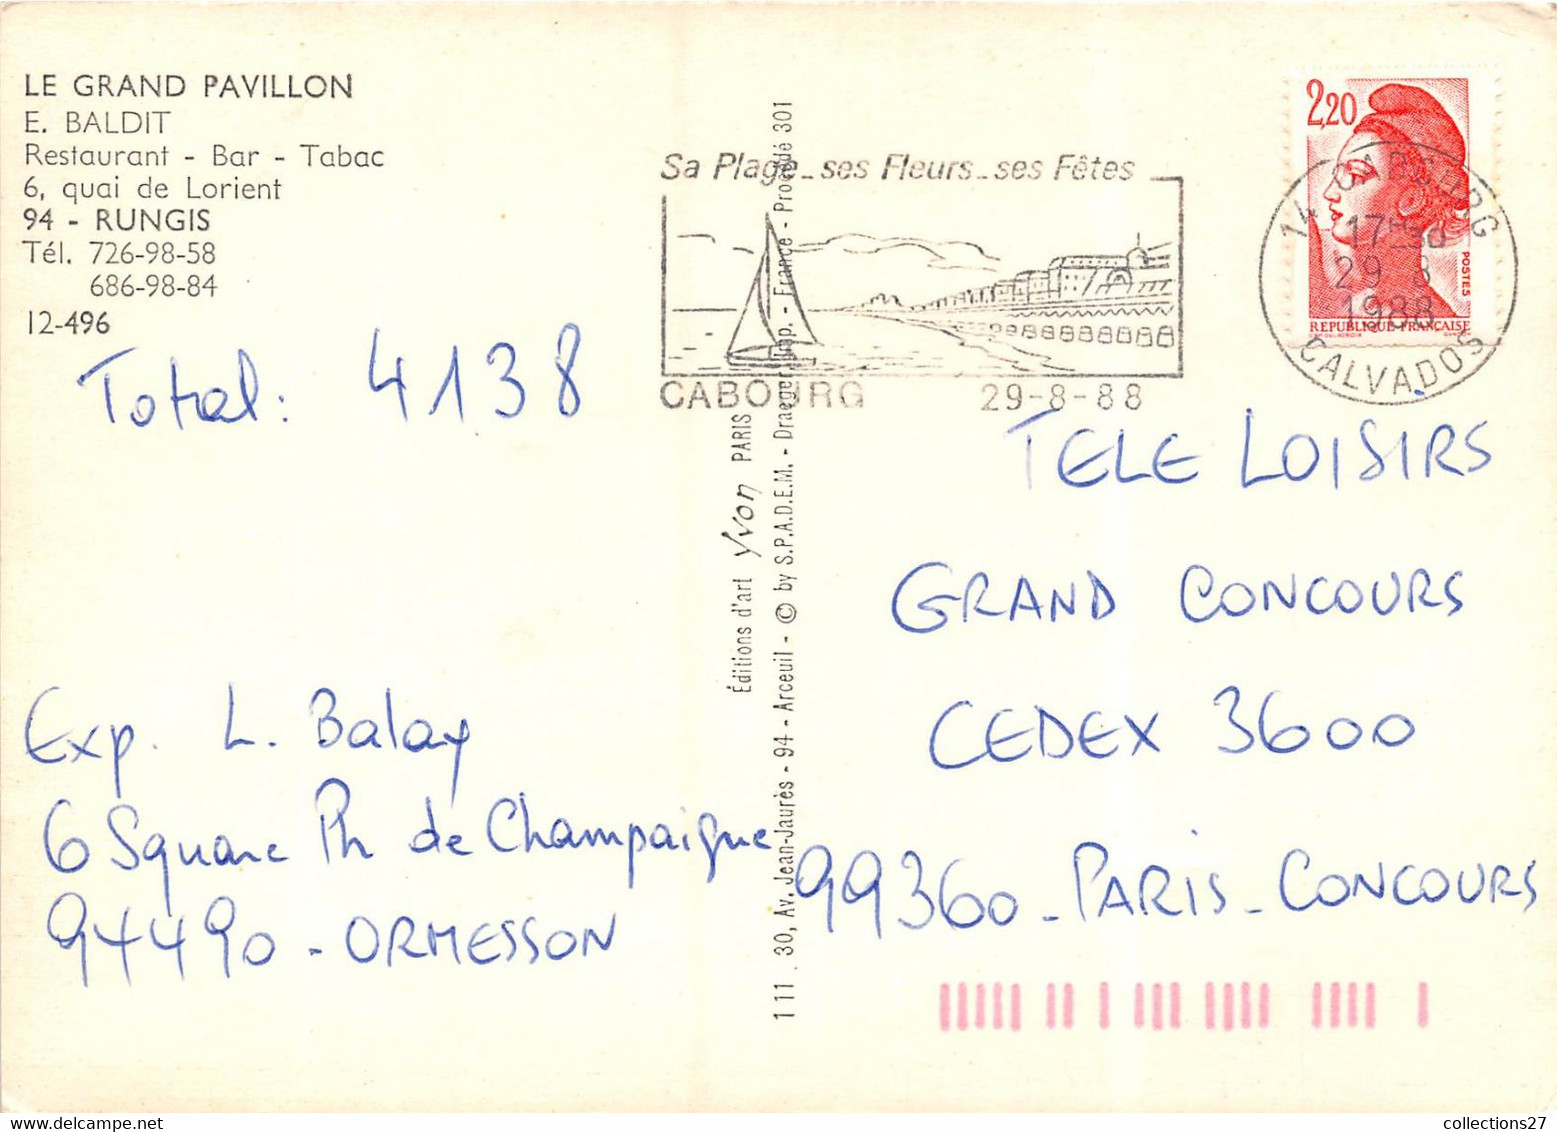 LE GRAND PAVILLON
E. BALDIT
Restaurant - Bar - Tabac
6, quai de Lorient
94 - RUNGIS
Tél. 726-98-58
686-98-84
12-496
Total: 4138
Exp. L. Balay
6 Square Ph de Champaigne
94490 - ORMESSON
Éditions d'art Yvon PARIS
111. 30, Av. Jean-Jaurès - 94 - Arceuil - © by S.P.A.D.E.M. - Draeger Imp. - France - Procédé 301
Sa Plage_ses Fleurs_ses Fêtes
CABOURG 29-8-88
2,20
POSTES
REPUBLIQUE FRANÇAISE
14 CABOURG
17H30
29 8
1988
CALVADOS
TELE LOISIRS
GRAND CONCOURS
CEDEX 3600
99360 - PARIS - CONCOURS
collections27